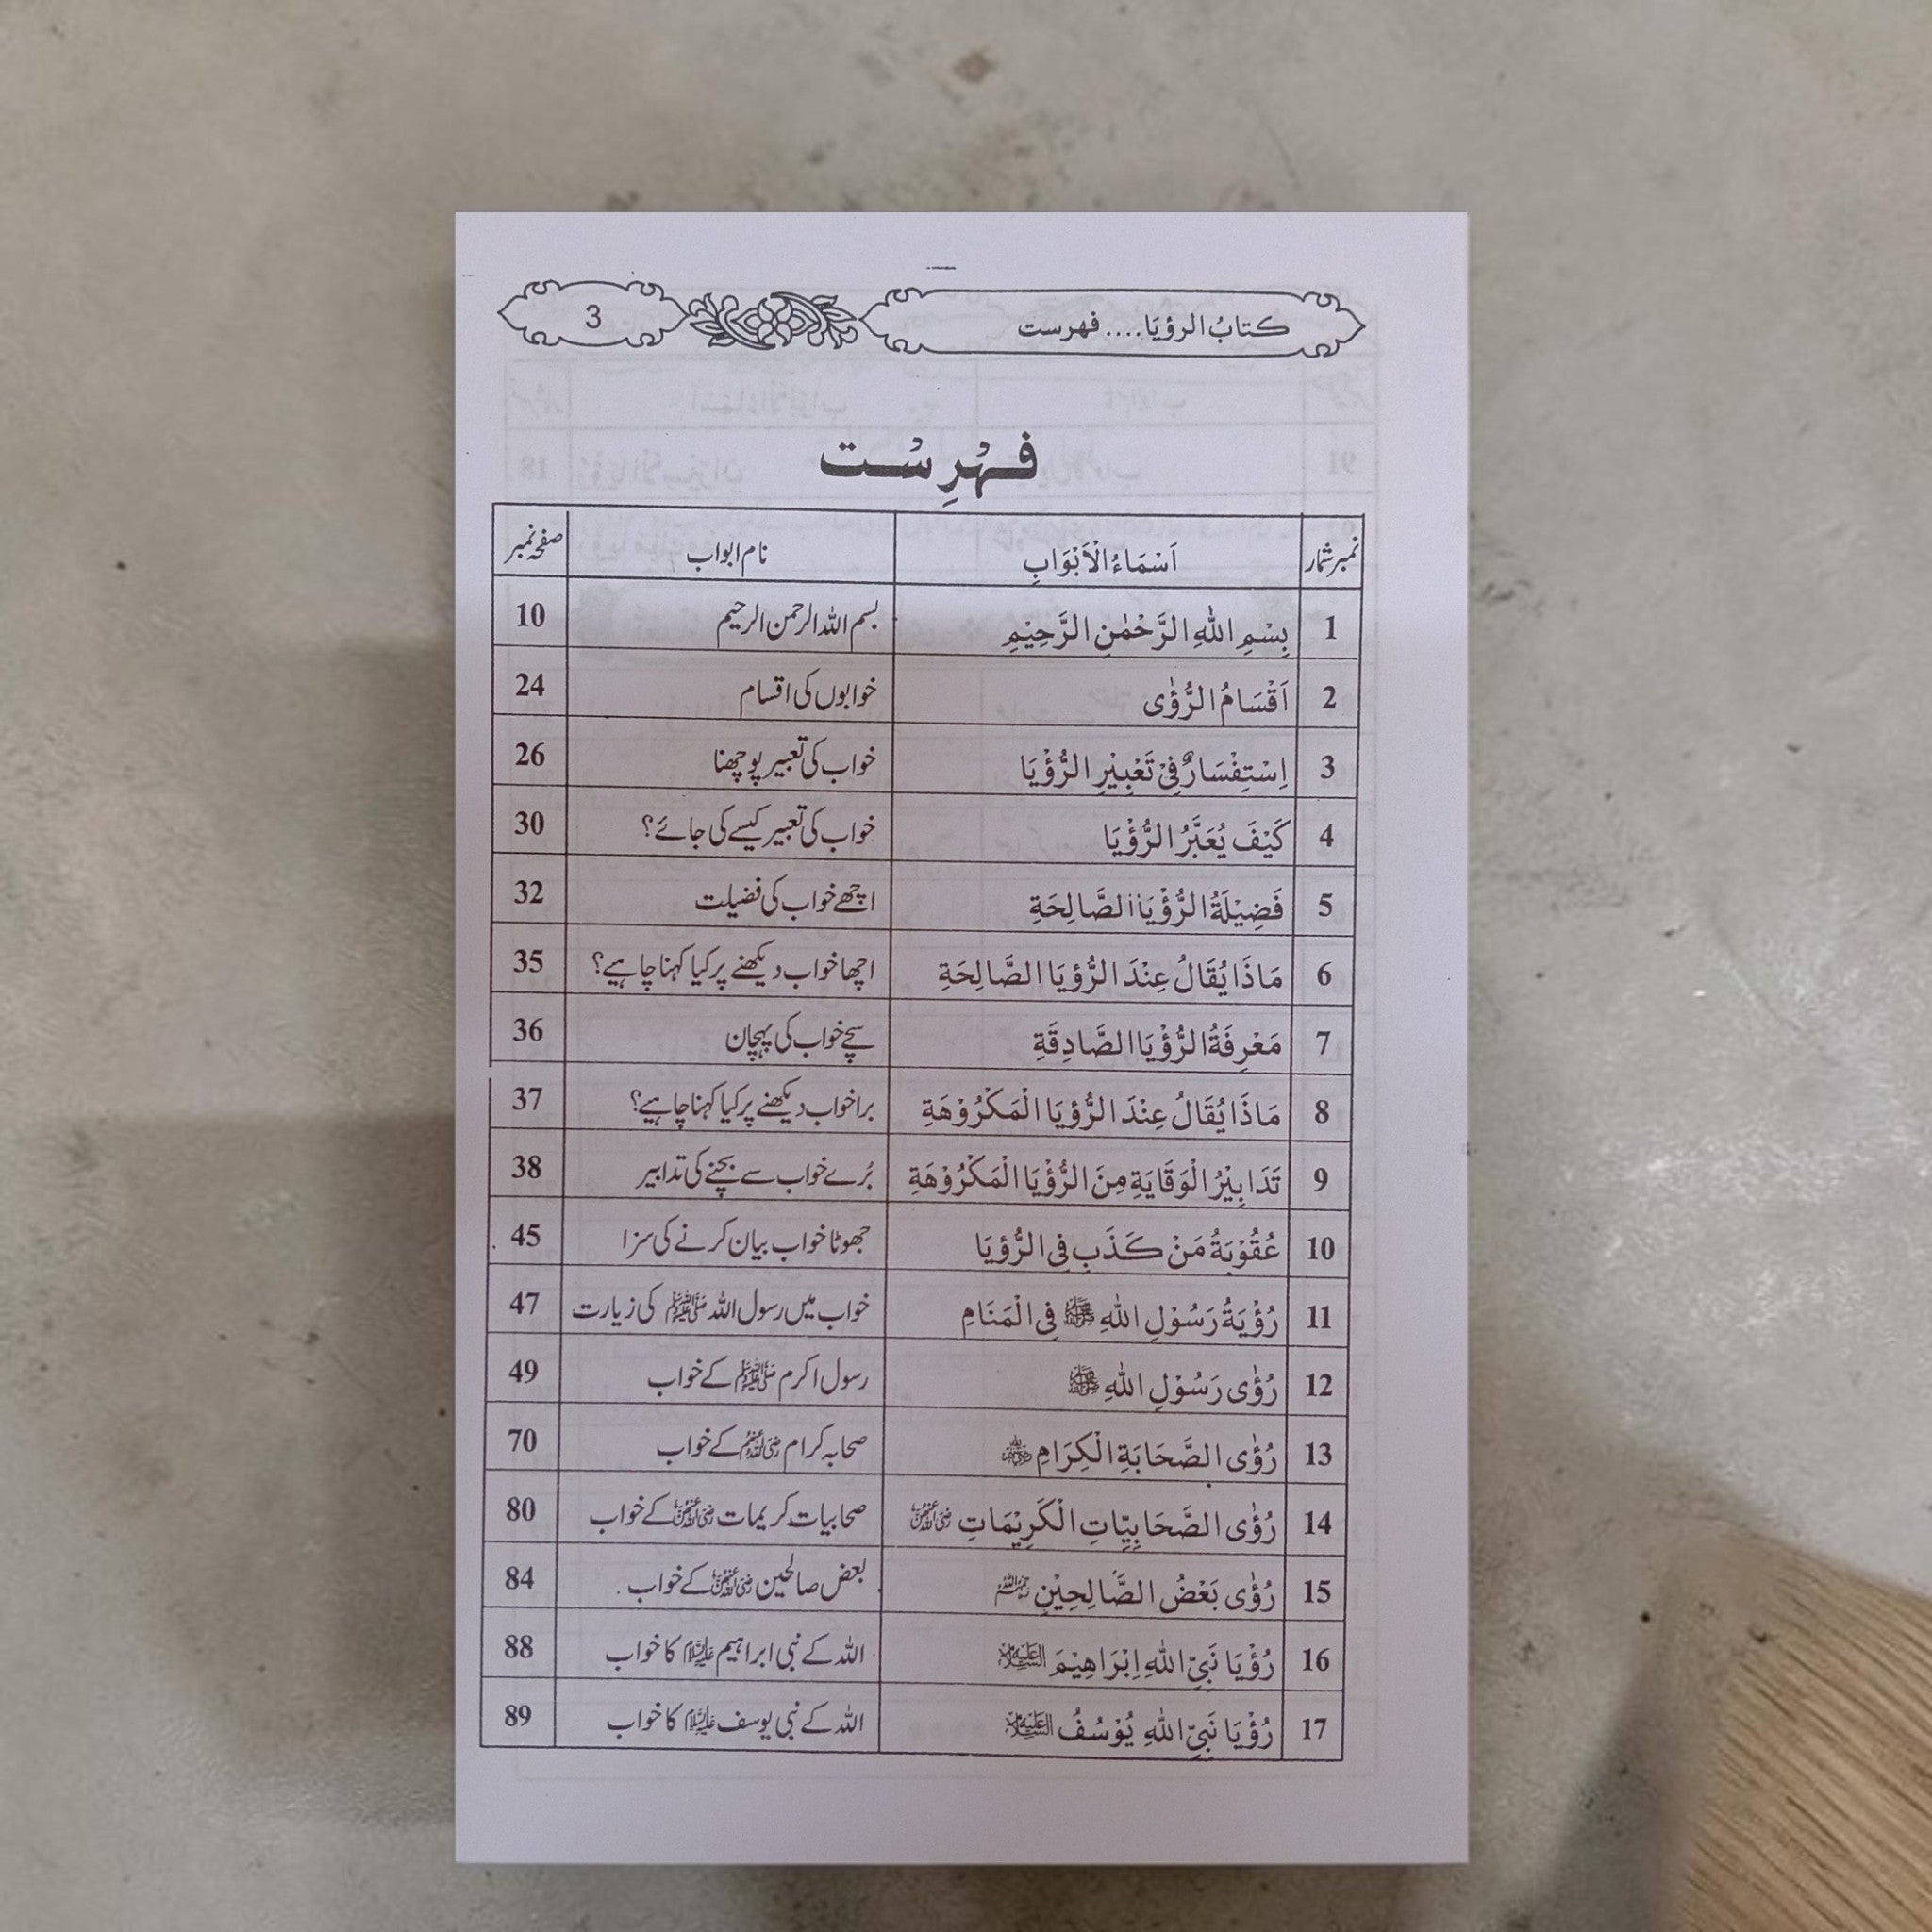 كتابُ الرؤيَا.... فهرست 3
فہرِسْت
نمبر شمار اَسْمَاءُ الْاَبْوَابِ نام ابواب صفحہ نمبر
1 بِسْمِ اللّٰهِ الرَّحْمٰنِ الرَّحِيْمِ بسم اللہ الرحمن الرحیم 10
2 اَقْسَامُ الرُّؤٰى خوابوں کی اقسام 24
3 اِسْتِفْسَارٌ فِىْ تَعْبِيْرِ الرُّؤْيَا خواب کی تعبیر پوچھنا 26
4 كَيْفَ يُعَبَّرُ الرُّؤْيَا خواب کی تعبیر کیسے کی جائے؟ 30
5 فَضِيْلَةُ الرُّؤْيَا الصَّالِحَةِ اچھے خواب کی فضیلت 32
6 مَاذَا يُقَالُ عِنْدَ الرُّؤيَا الصَّالِحَةِ اچھا خواب دیکھنے پر کیا کہنا چاہیے؟ 35
7 مَعْرِفَةُ الرُّؤْيَا الصَّادِقَةِ سچے خواب کی پہچان 36
8 مَاذَا يُقَالُ عِنْدَ الرُّؤيَا الْمَكْرُوْهَةِ برا خواب دیکھنے پر کیا کہنا چاہیے؟ 37
9 تَدَابِيْرُ الْوَقَايَةِ مِنَ الرُّؤْيَا الْمَكْرُوْهَةِ بُرے خواب سے بچنے کی تدابیر 38
10 عُقُوْبَةُ مَنْ كَذَبَ فِى الرُّؤيَا جھوٹا خواب بیان کرنے کی سزا 45
11 رُؤْيَةُ رَسُوْلِ اللّٰهِ ﷺ فِى الْمَنَامِ خواب میں رسول اللہ ﷺ کی زیارت 47
12 رُؤٰى رَسُوْلِ اللّٰهِ ﷺ رسول اکرم ﷺ کے خواب 49
13 رُؤٰى الصَّحَابَةِ الْكِرَامِ صحابہ کرام رضی اللہ عنہم کے خواب 70
14 رُؤٰى الصَّحَابِيَّاتِ الْكَرِيْمَاتِ رضی اللہ عنہن صحابیات کریمات رضی اللہ عنہن کے خواب 80
15 رُؤٰى بَعْضُ الصَّالِحِيْنِ بعض صالحین کے خواب 84
16 رُؤْيَا نَبِىِّ اللّٰهِ اِبْرَاهِيْمَ علیہ السلام اللہ کے نبی ابراہیم علیہ السلام کا خواب 88
17 رُؤْيَا نَبِىِّ اللّٰهِ يُوْسُفُ علیہ السلام اللہ کے نبی یوسف علیہ السلام کا خواب 89